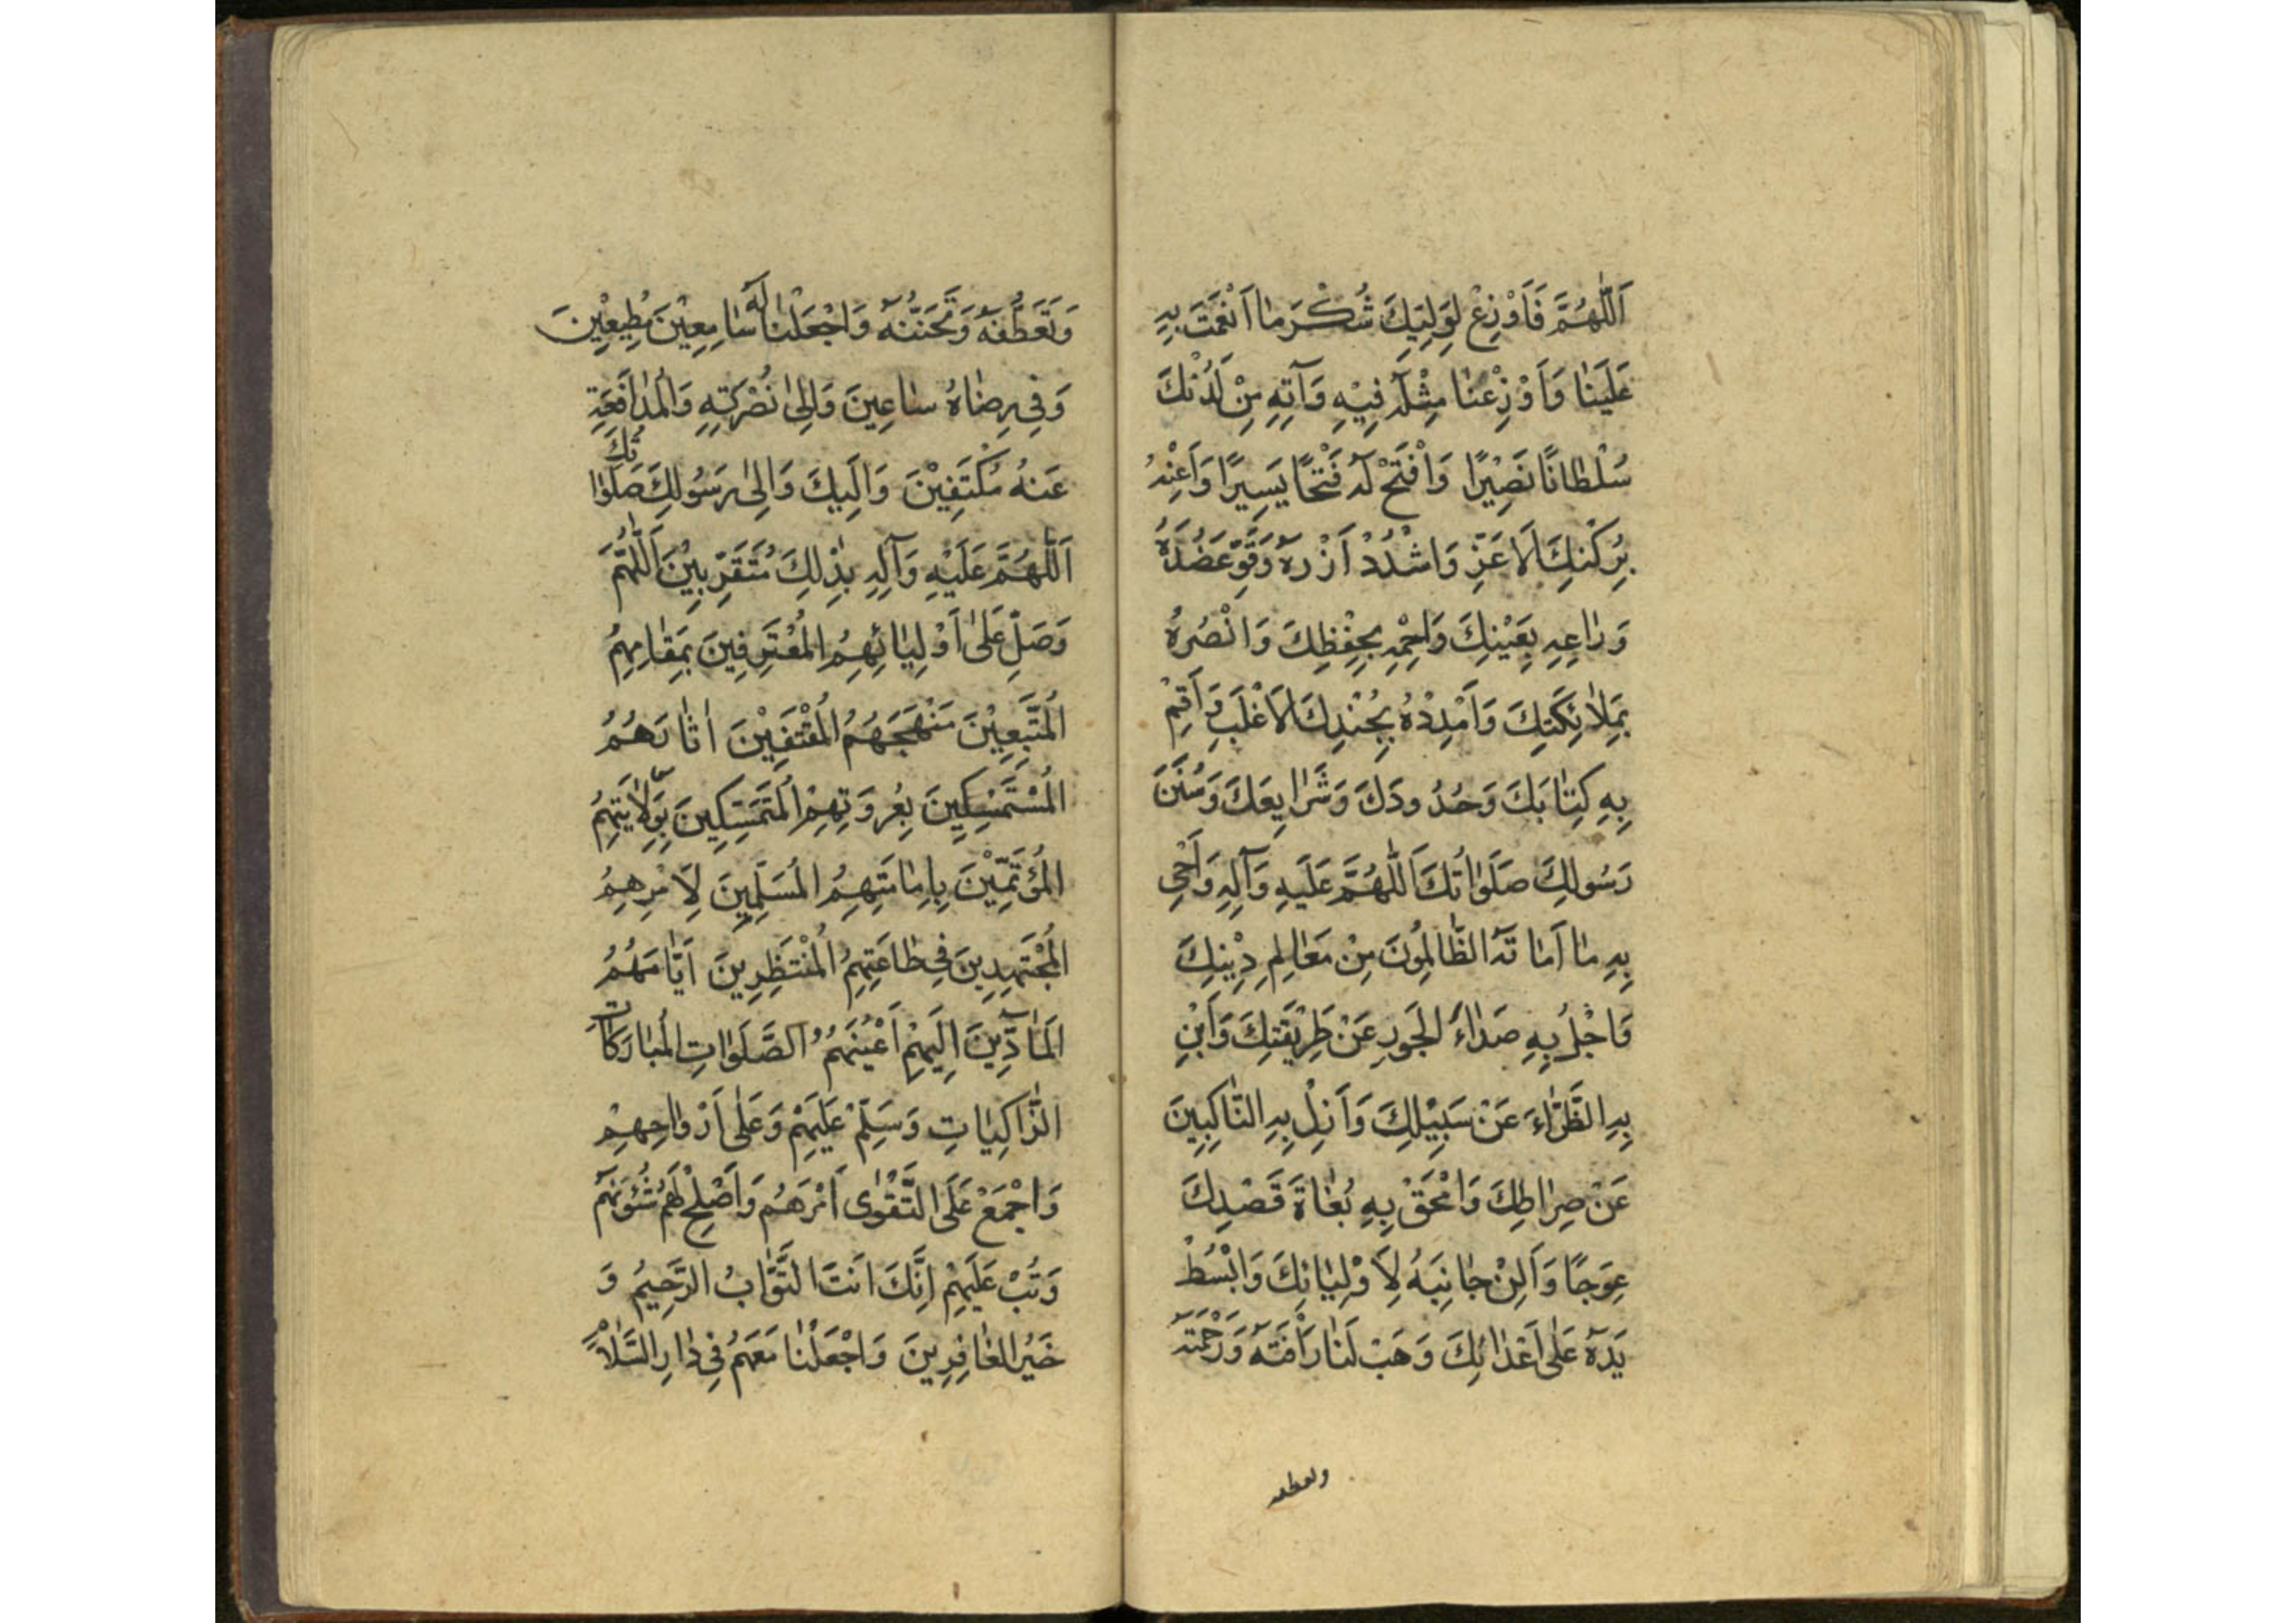 اَللّٰهُمَّ فَاَوْزِعْ لِوَلِيِّكَ شُكْرَ مٰا اَنْعَمْتَ بِهِ
عَلَيْنٰا وَاَوْزِعْنٰا مِثْلَهُ فِيْهِ وَآتِهِ مِنْ لَدُنْكَ
سُلْطٰانًا نَصِيْرًا وَافْتَحْ لَهُ فَتْحًا يَسِيرًا وَاَعِنْهُ
بِرُكْنِكَ اَلاَعَزِّ وَاشْدُدْ اَزْرَهُ وَقَوِّ عَضُدَهُ
وَرٰاعِهِ بِعَيْنِكَ وَاحْمِهِ بِحِفْظِكَ وَانْصُرْهُ
بِمَلاٰئِكَتِكَ وَاَمْدِدْهُ بِجُنْدِكَ الاَغْلَبِ وَاَقِمْ
بِهِ كِتٰابَكَ وَحُدُودَكَ وَشَرٰايِعَكَ وَسُنَنَ
رَسُولِكَ صَلَوٰاتُكَ اَللّٰهُمَّ عَلَيهِ وَآلِهِ وَاَحْيِ
بِهِ مٰا اَمٰاتَهُ الظّٰالِمُونَ مِنْ مَعٰالِمِ دِيْنِكَ
وَاجْلُ بِهِ صَدٰاءَ الجَورِ عَنْ طَرِيْقَتِكَ وَاَبْنِ
بِهِ الضَّرّٰاءَ عَنْ سَبِيْلِكَ وَاَزِلْ بِهِ النّٰاكِبِينَ
عَنْ صِرٰاطِكَ وَامْحَقْ بِهِ بُغٰاةَ قَصْدِكَ
عِوَجًا وَاَلِنْ جٰانِبَهُ لِاَوْلِيٰائِكَ وَابْسُطْ
يَدَهُ عَلٰى اَعْدٰائِكَ وَهَبْ لَنٰا رَأْفَتَهُ وَرَحْمَتَهُ
وتعطفه
وَتَعَطُّفَهُ وَتَحَنُّنَهُ وَاجْعَلْنٰا لَهُ سٰامِعِيْنَ مُطِيعِيْنَ
وَفِي رِضٰاهُ سٰاعِينَ وَاِلىٰ نُصْرَتِهِ وَالْمُدٰافَعَةِ
عَنهُ مُكْتَفِيْنَ وَاِلَيكَ وَاِلىٰ رَسُولِكَ صَلَوٰاتُكَ
اَللّٰهُمَّ عَلَيْهِ وَآلِهِ بِذٰلِكَ مُتَقَرِّبِيْنَ اَللّٰهُمَّ
وَصَلِّ عَلىٰ اَوْلِيٰائِهِمُ المُعْتَرِفِينَ بِمَقٰامِهِمُ
المُتَّبِعِيْنَ مَنْهَجَهُمُ المُقْتَفِيْنَ اٰثٰارَهُمُ
المُسْتَمْسِكِينَ بِعُروَتِهِمْ المُتَمَسِّكِينَ بِوَلاٰيَتِهِمُ
المُؤْتَمِّيْنَ بِاِمٰامَتِهِمُ المُسَلِّمِينَ لِاَمْرِهِمُ
المُجْتَهِدِينَ فِي طٰاعَتِهِمُ المُنْتَظِرِينَ اَيّٰامَهُمُ
المٰادِّينَ اِلَيهِمْ اَعْيُنَهُمُ الصَّلَوٰاتِ المُبٰارَكٰاتِ
الزّٰاكِيٰاتِ وَسَلِّمْ عَلَيهِمْ وَعَلٰى اَرْوٰاحِهِمْ
وَاجْمَعْ عَلَى التَّقْوٰى اَمْرَهُم وَاَصْلِحْ لَهُمْ شُئُونَهُمْ
وَتُبْ عَلَيهِمْ اِنَّكَ اَنتَ التَّوّٰابُ الرَّحِيمُ وَ
خَيْرُ الغٰافِرِينَ وَاجْعَلْنٰا مَعَهُمْ فِي دٰارِ السَّلاٰمِ